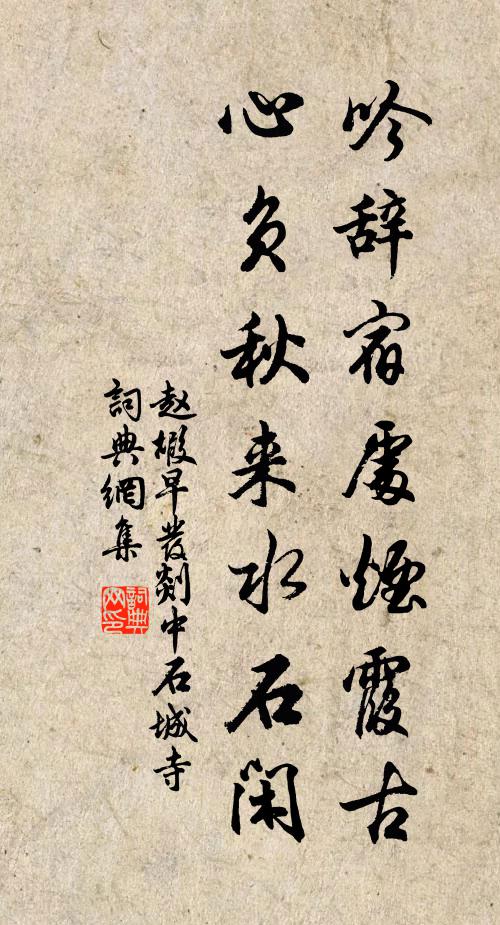 吟辞宿處煙霞古
心负秋来水石閑
赵嘏早發剡中石城寺
詞典網集
詞典
网印